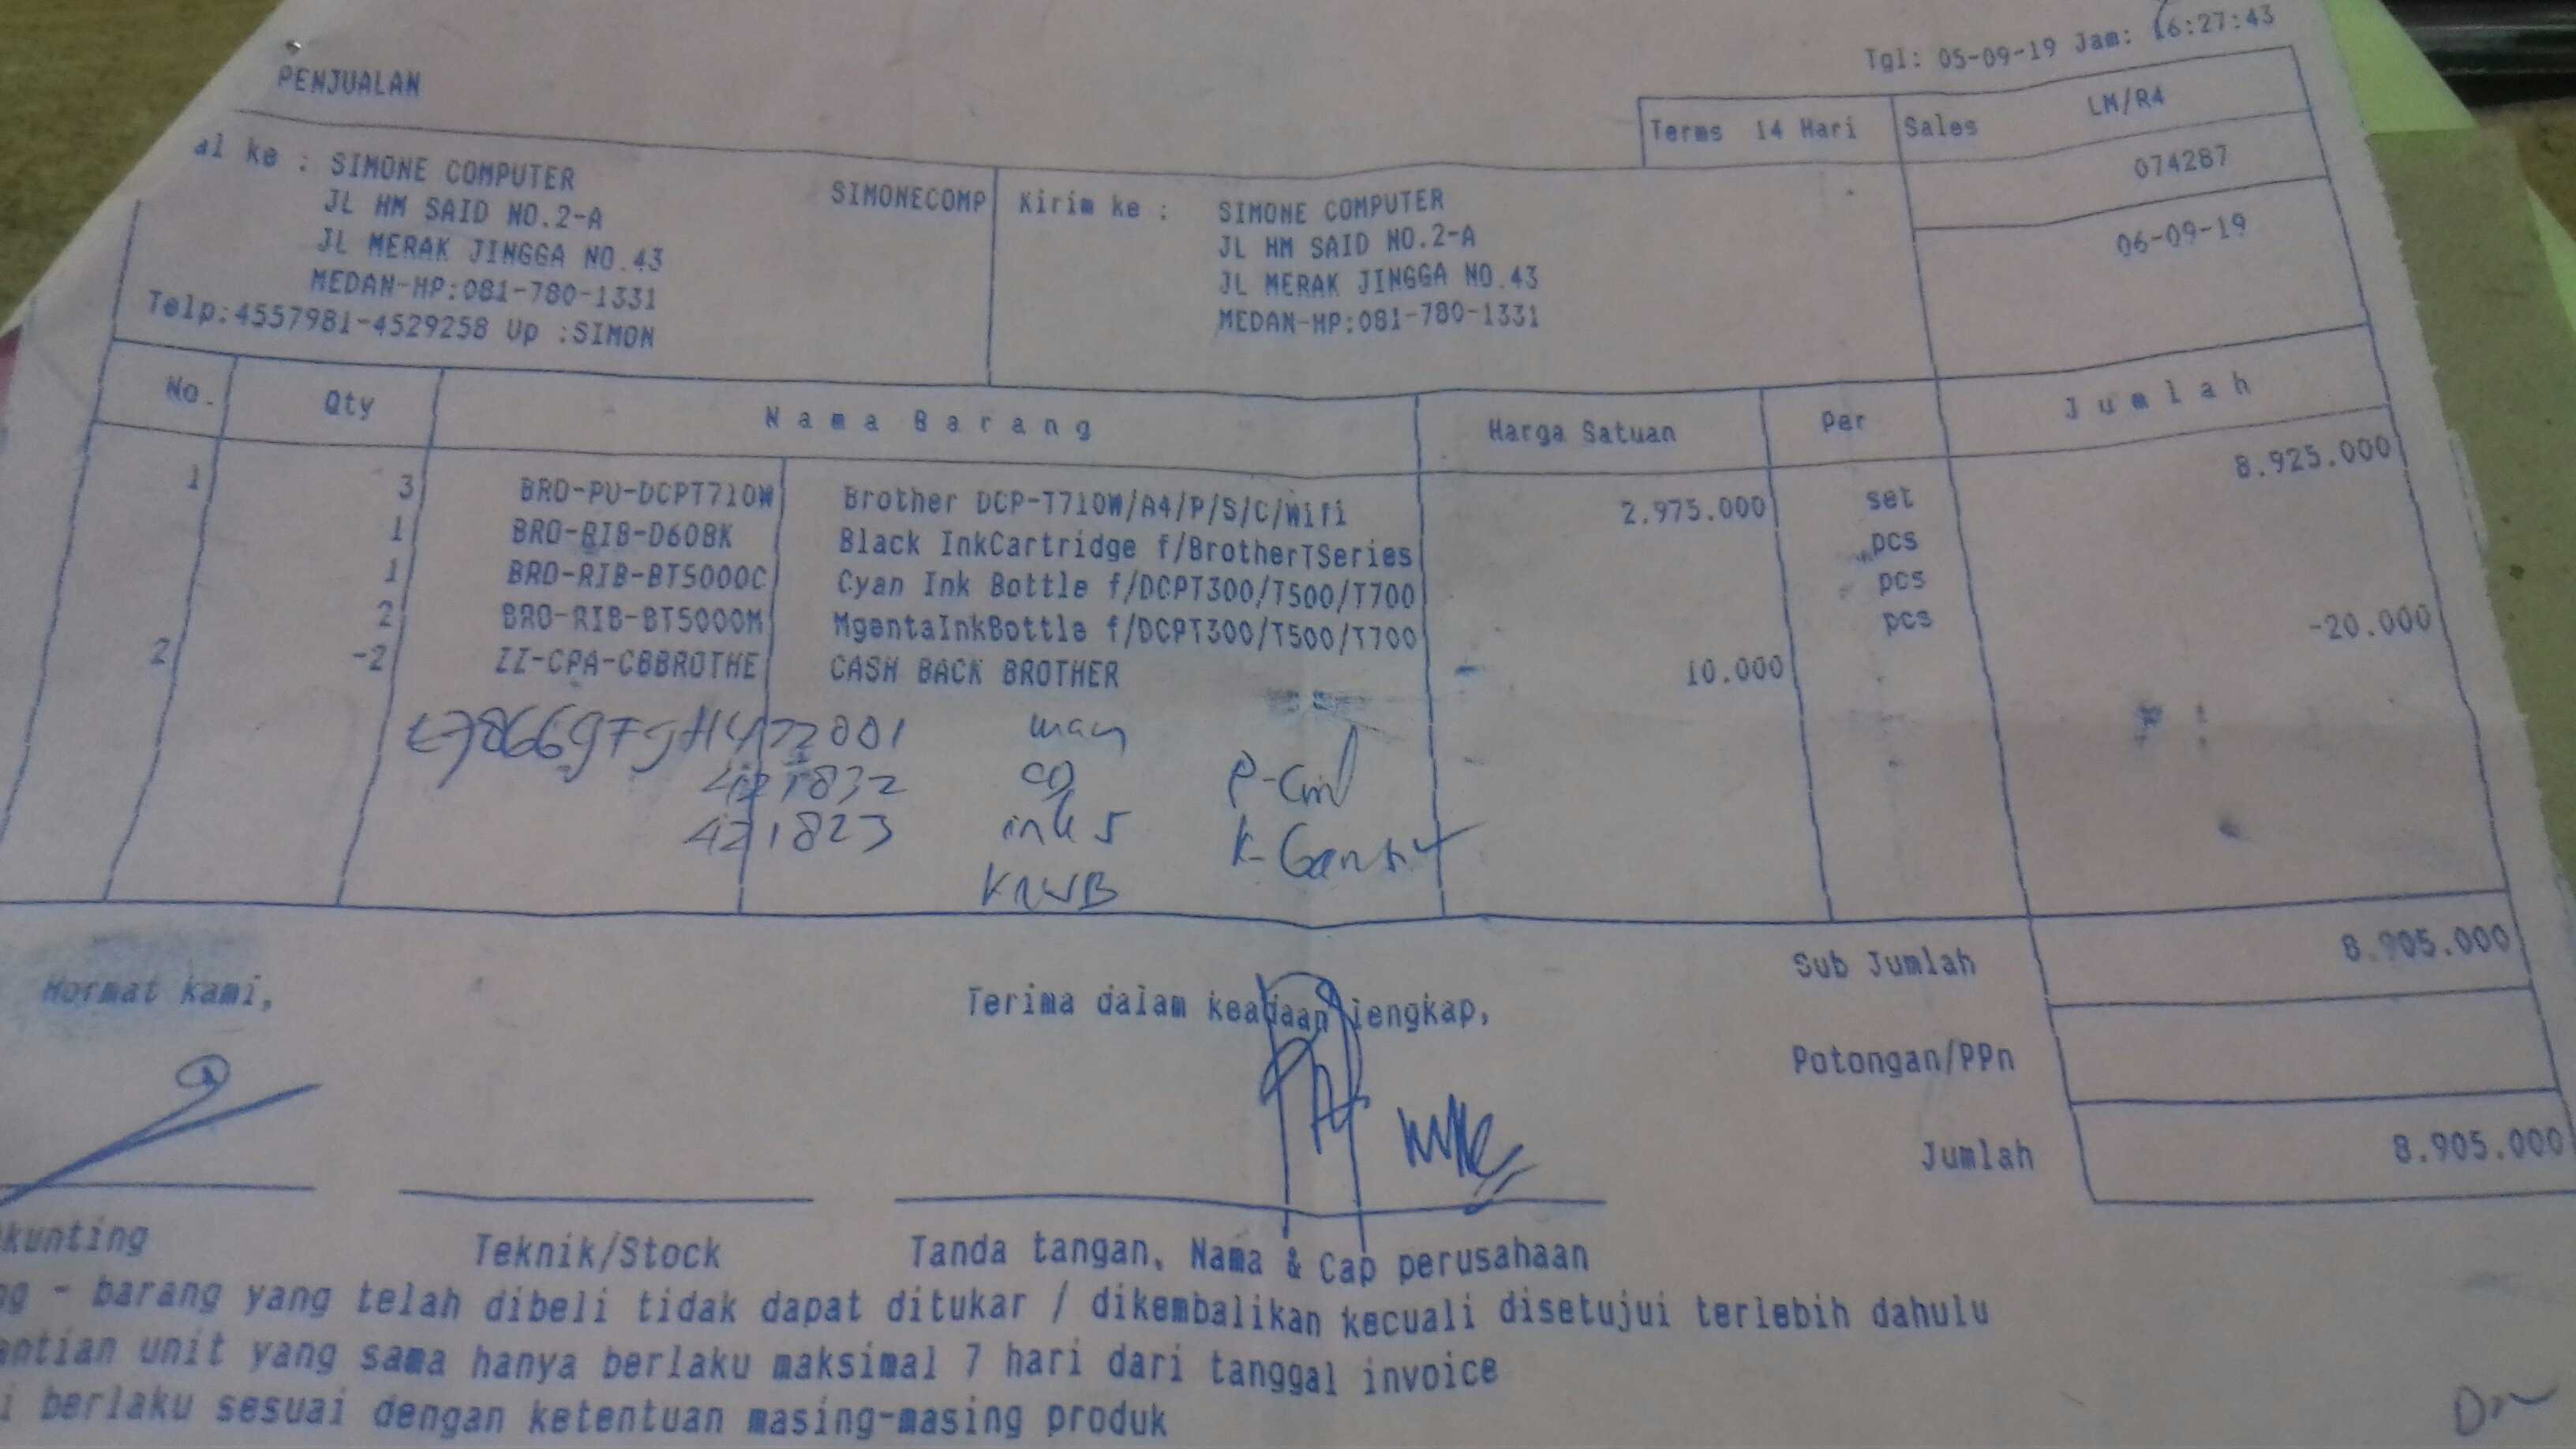 Tgl: 05-09-19 Jam: 16:27:43
PENJUALAN
Terms 14 Hari Sales LM/R4
074287
06-09-19
al ke : SIMONE COMPUTER SIMONECOMP
JL HM SAID NO.2-A
JL MERAK JINGGA NO.43
MEDAN-HP:081-780-1331
Telp:4557981-4529258 Up :SIMON
Kirim ke : SIMONE COMPUTER
JL HM SAID NO.2-A
JL MERAK JINGGA NO.43
MEDAN-HP:081-780-1331
No. Qty Nama Barang Harga Satuan Per Jumlah
1 3 BRO-PU-DCPT710W Brother DCP-T710W/A4/P/S/C/Wifi 2.975.000 set 8.925.000
1 BRO-RIB-D60BK Black InkCartridge f/BrotherTSeries pcs
1 BRO-RIB-BT5000C Cyan Ink Bottle f/DCPT300/T500/T700 pcs
2 BRO-RIB-BT5000M MgentaInkBottle f/DCPT300/T500/T700 pcs
2 -2 ZZ-CPA-CBBROTHE CASH BACK BROTHER 10.000 -20.000
421832
421823 ink 5
Sub Jumlah 8.905.000
Hormat kami,
Terima dalam keadaan lengkap,
Potongan/PPn
Jumlah 8.905.000
kunting Teknik/Stock Tanda tangan, Nama & Cap perusahaan
ng - barang yang telah dibeli tidak dapat ditukar / dikembalikan kecuali disetujui terlebih dahulu
antian unit yang sama hanya berlaku maksimal 7 hari dari tanggal invoice
i berlaku sesuai dengan ketentuan masing-masing produk